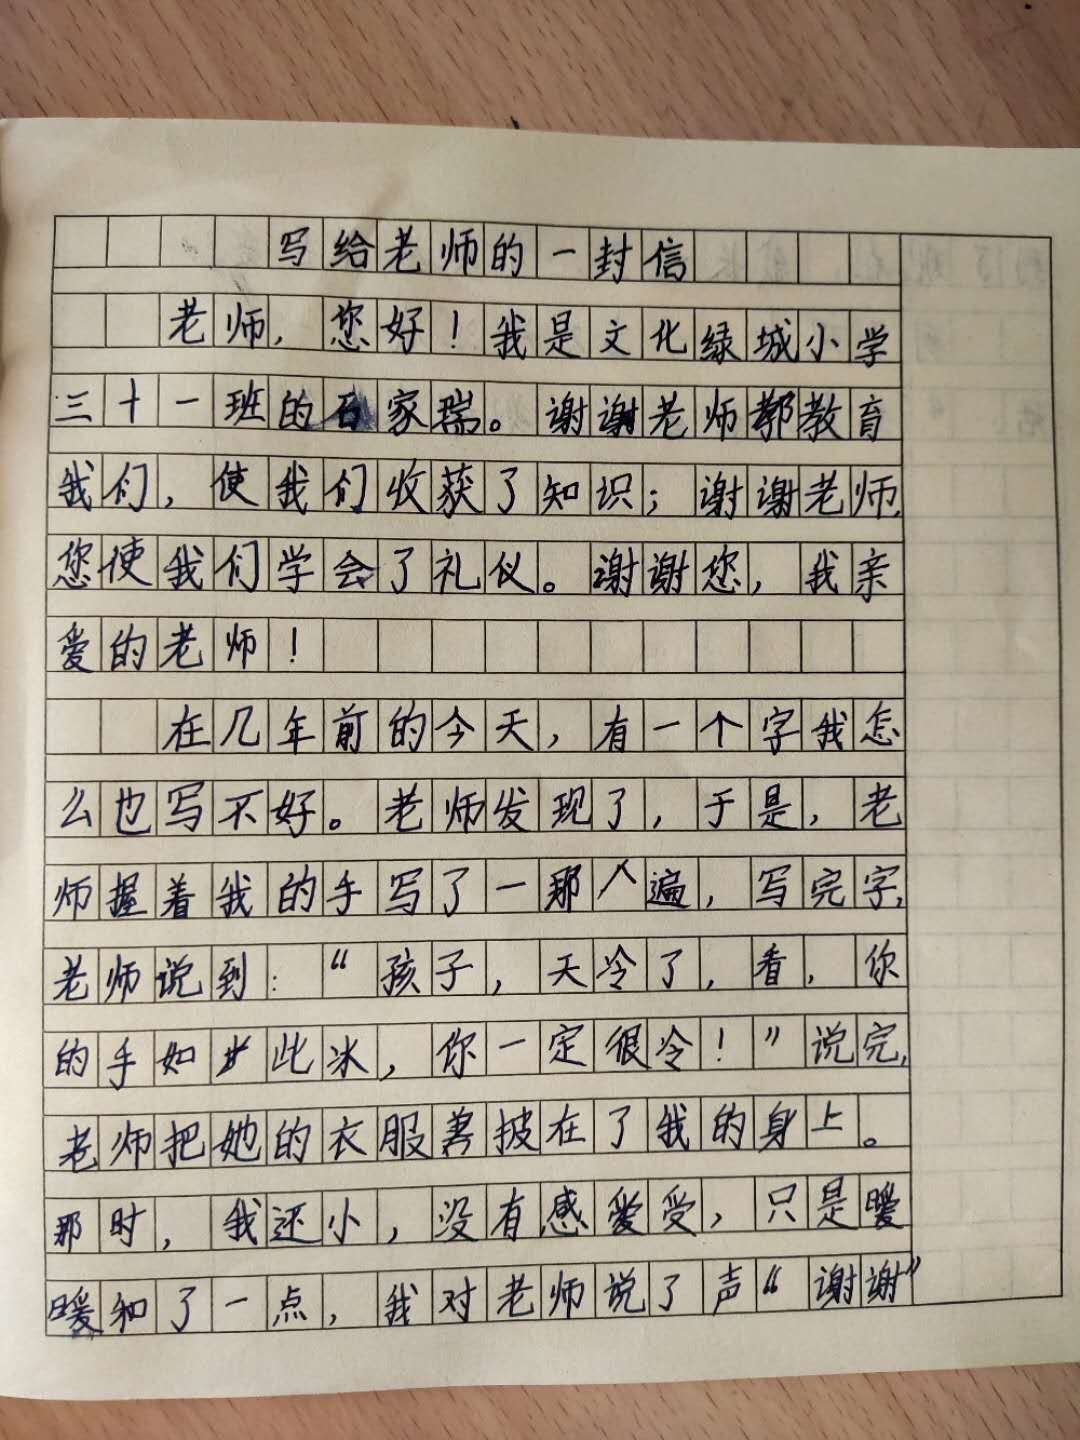 写给老师的一封信
老师,您好!我是文化绿城小学
三十一班的石家瑞。谢谢老师教育
我们,使我们收获了知识;谢谢老师,
您使我们学会了礼仪。谢谢您,我亲
爱的老师!
在几年前的今天,有一个字我怎
么也写不好。老师发现了,于是,老
师握着我的手写了一那个遍,写完字,
老师说到:“孩子,天冷了,看,你
的手如此冰,你一定很冷!”说完,
老师把她的衣服披在了我的身上。
那时,我还小,没有感爱受,只是暖
暖和了一点,我对老师说了声“谢谢”